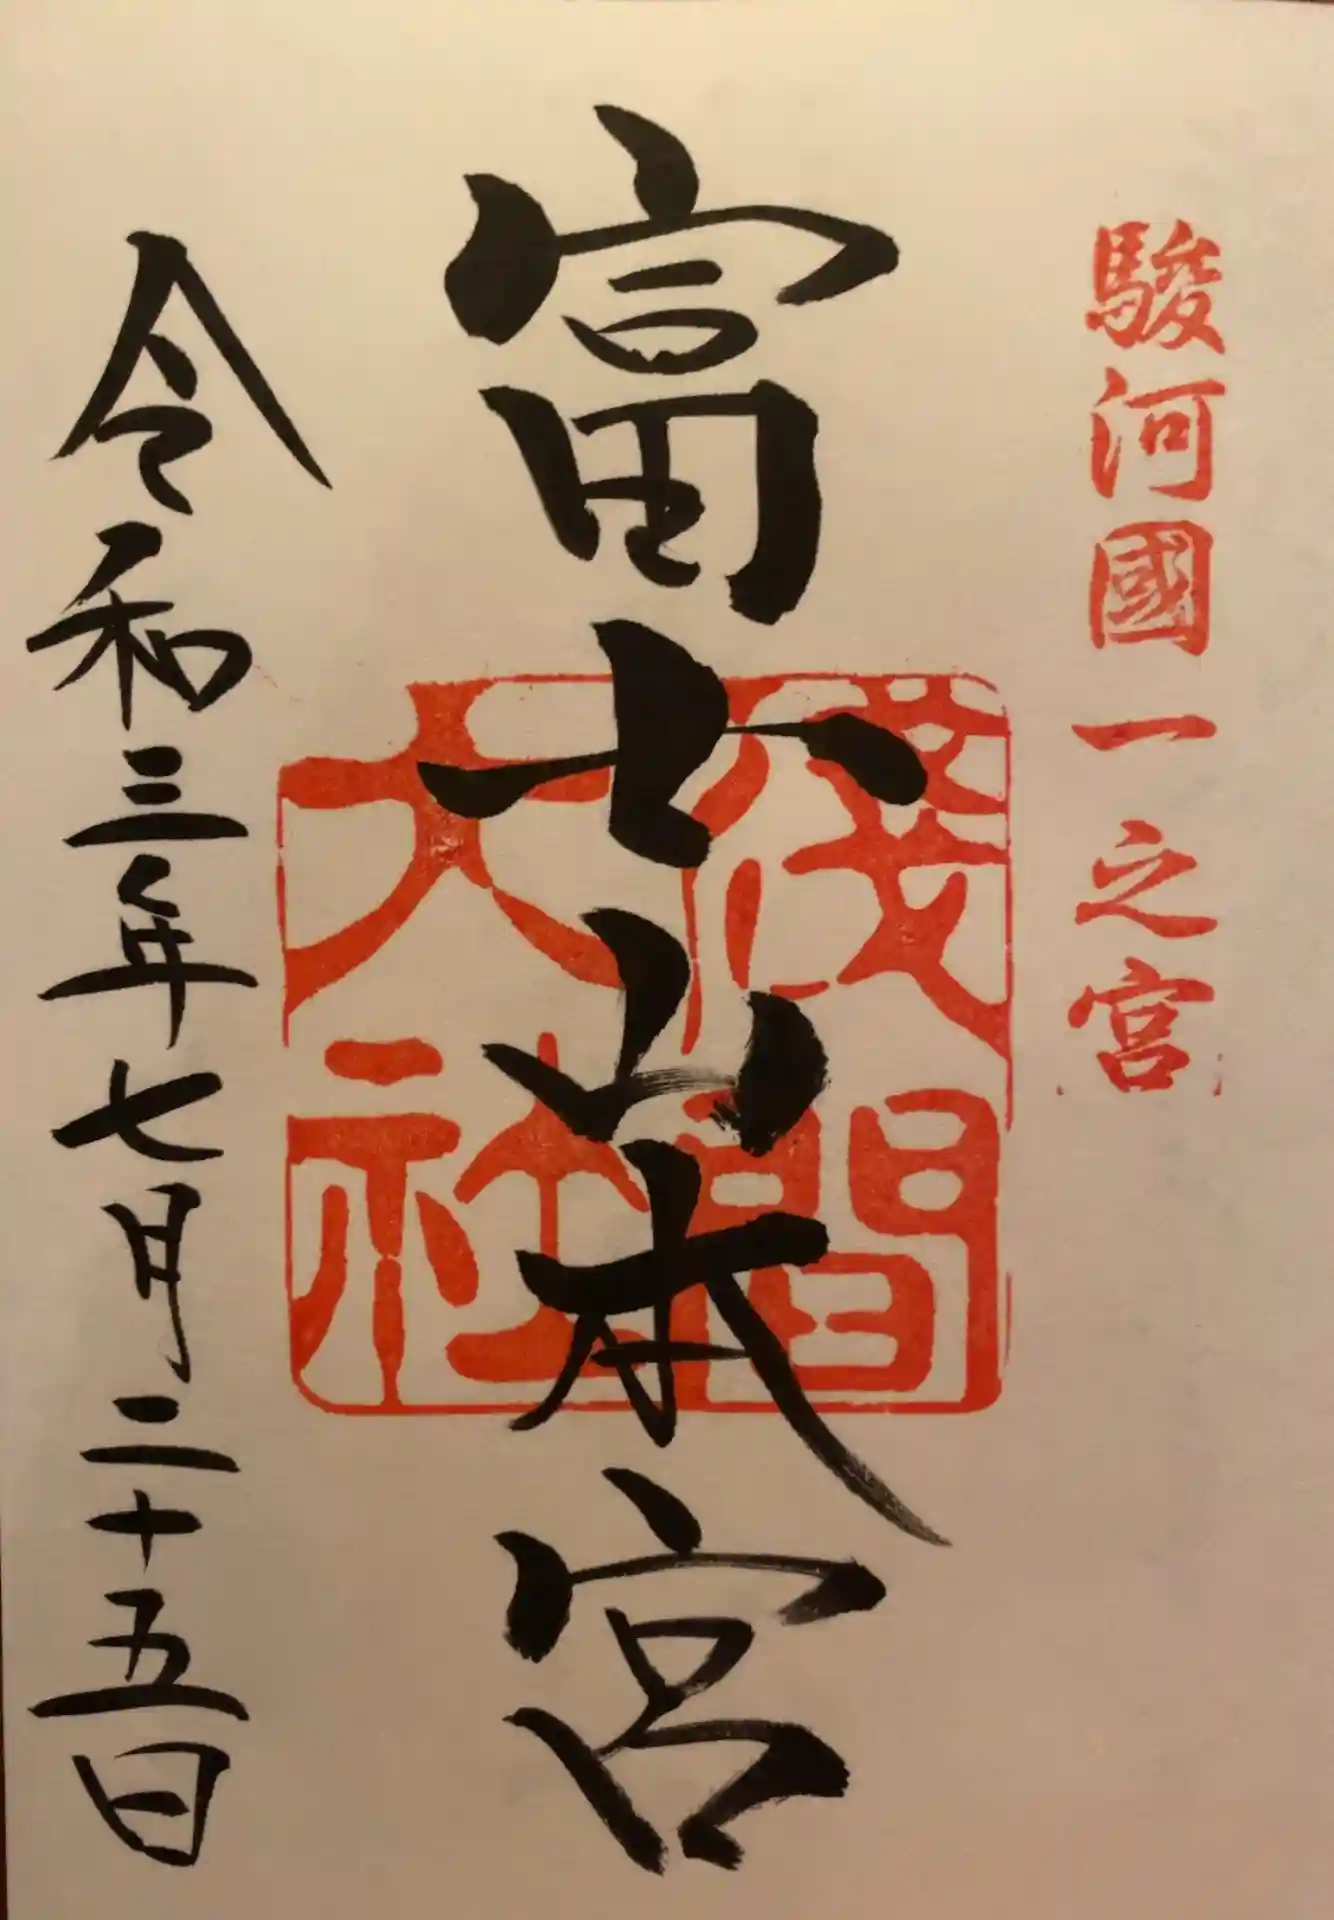 駿河國一之宮
富士山本宮
浅間大社
令和三年七月二十五日